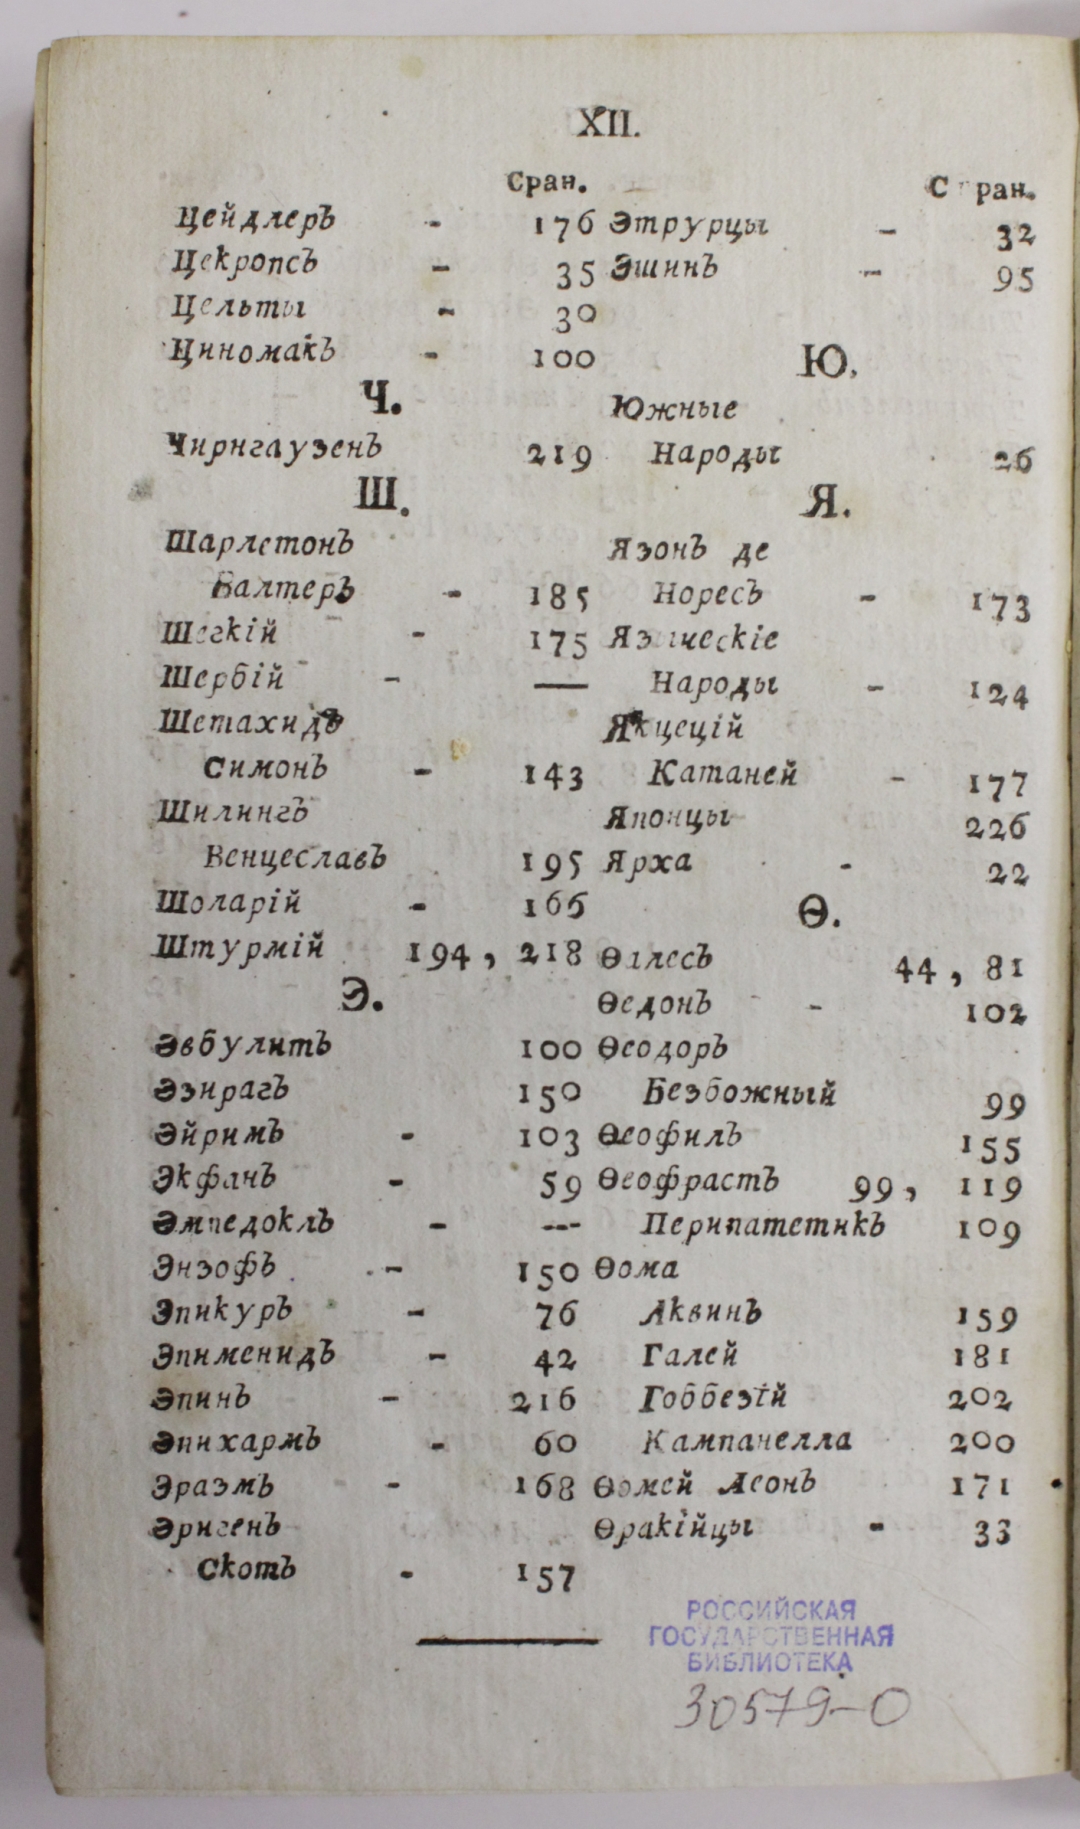 XII.
Сран.
Цейдлеръ - 176
Цекропсъ - 35
Цельты - 30
Циномакъ - 100
Ч.
Чирнгаузенъ 219
Ш.
Шарлетонъ
Валтеръ - 185
Шегкій - 175
Шербій - —
Шетахидъ
Симонъ - 143
Шилингъ
Венцеславъ 195
Шоларій - 166
Штурмій 194, 218
Э.
Эвбулитъ 100
Эзирагъ 150
Эйримъ - 103
Экфанъ - 59
Эмпедоклъ - ---
Энзофъ - 150
Эпикуръ - 76
Эпименидъ - 42
Эпинъ - 216
Эпихармъ - 60
Эразмъ - 168
Эригенъ
Скотъ - 157
Стран.
Этрурцы - 32
Эшинъ - 95
Ю.
Южные
Народы 26
Я.
Язонъ де
Норесъ - 173
Языческіе
Народы - 124
Якцецій
Катаней - 177
Японцы 226
Ярха - 22
Ѳ.
Ѳалесъ 44, 81
Ѳедонъ - 102
Ѳеодоръ
Безбожный 99
Ѳеофилъ 155
Ѳеофрастъ 99, 119
Перипатетикъ 109
Ѳома
Аквинъ 159
Галей 181
Гоббезій 202
Кампанелла 200
Ѳомей Леонъ 171
Ѳракійцы - 33
РОССИЙСКАЯ
ГОСУДАРСТВЕННАЯ
БИБЛИОТЕКА
30579-0